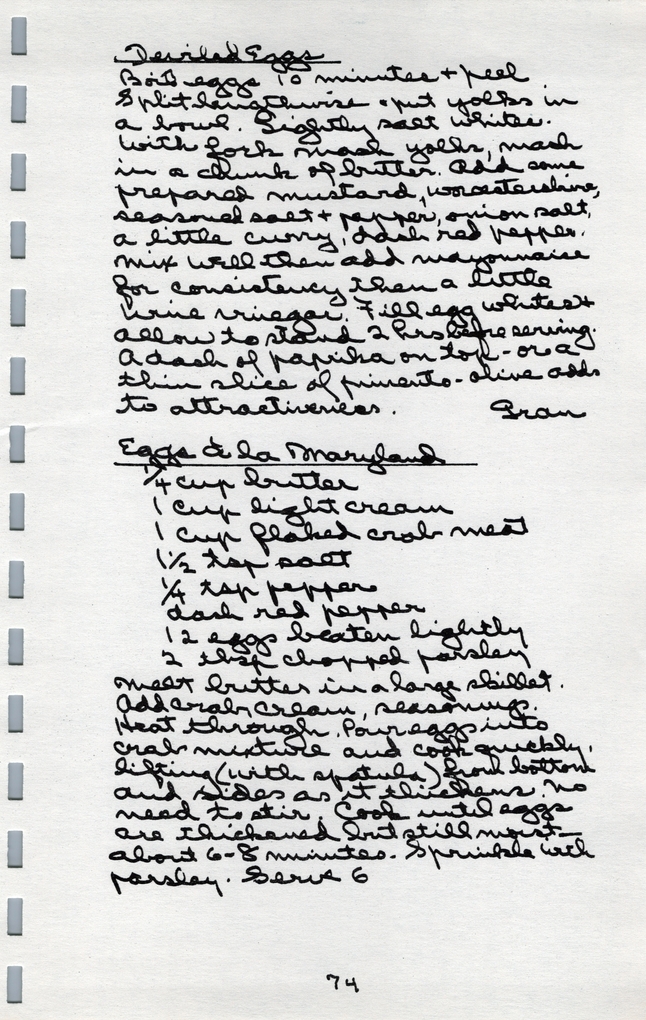 Deviled Eggs
Boil eggs 10 minutes + peel
Split lengthwise + put yolks in
a bowl. Lightly salt whites.
With fork mash yolks, mash
in a chunk of butter. Add some
prepared mustard, worcestershire,
seasoned salt + pepper, onion salt,
a little curry, dash red pepper.
Mix well then add mayonnaise
for consistency then a little
wine vinegar. Fill egg whites +
allow to stand 2 hrs before serving.
A dash of paprika on top - or a
thin slice of pimento-olive adds
to attractiveness. Gran
Eggs à la Maryland
1/4 cup butter
1 cup light cream
1 cup flaked crab meat
1 1/2 tsp salt
1/4 tsp pepper
dash red pepper
12 eggs beaten lightly
2 tbsp chopped parsley
Melt butter in a large skillet.
Add crab, cream, seasonings.
Heat through. Pour eggs into
crab mixture and cook quickly,
lifting (with spatula) from bottom
and sides as it thickens. No
need to stir. Cook until eggs
are thickened but still moist -
about 6-8 minutes. Sprinkle with
parsley. Serve 6
74